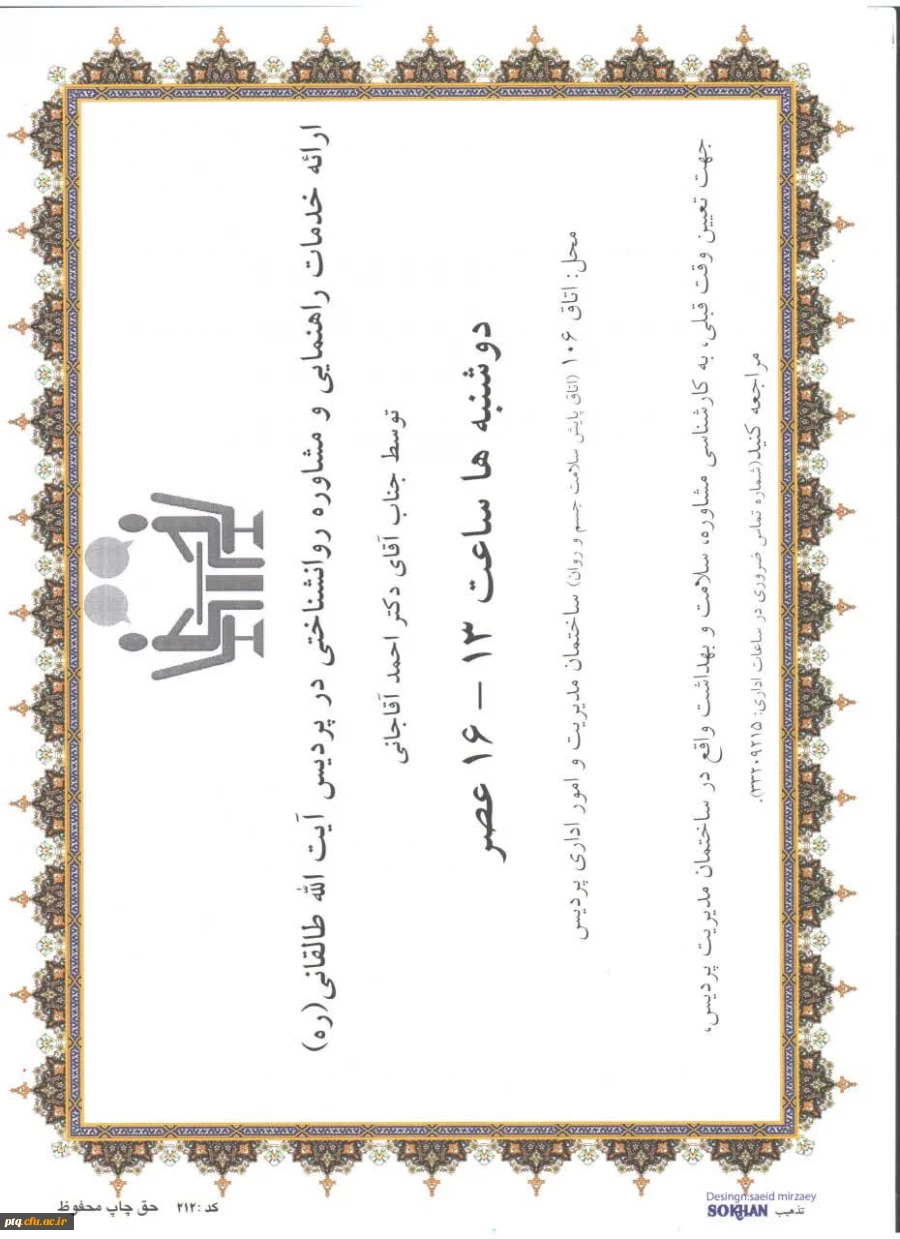 ارائه خدمات راهنمایی و مشاوره روانشناختی در پردیس آیت الله طالقانی(ره)
توسط جناب آقای دکتر احمد آقاجانی
دوشنبه ها ساعت ۱۳ – ۱۶ عصر
محل: اتاق ۱۰۶ (اتاق پایش سلامت جسم و روان) ساختمان مدیریت و امور اداری پردیس
جهت تعیین وقت قبلی، به کارشناسی مشاوره، سلامت و بهداشت واقع در ساختمان مدیریت پردیس،
مراجعه کنید(شماره تماس ضروری در ساعات اداری: ۳۳۲۰۹۲۱۵).
کد :۲۱۲ حق چاپ محفوظ
Desingn:saeid mirzaey
تذهیب SOKHAN
ptq.cfu.ac.ir